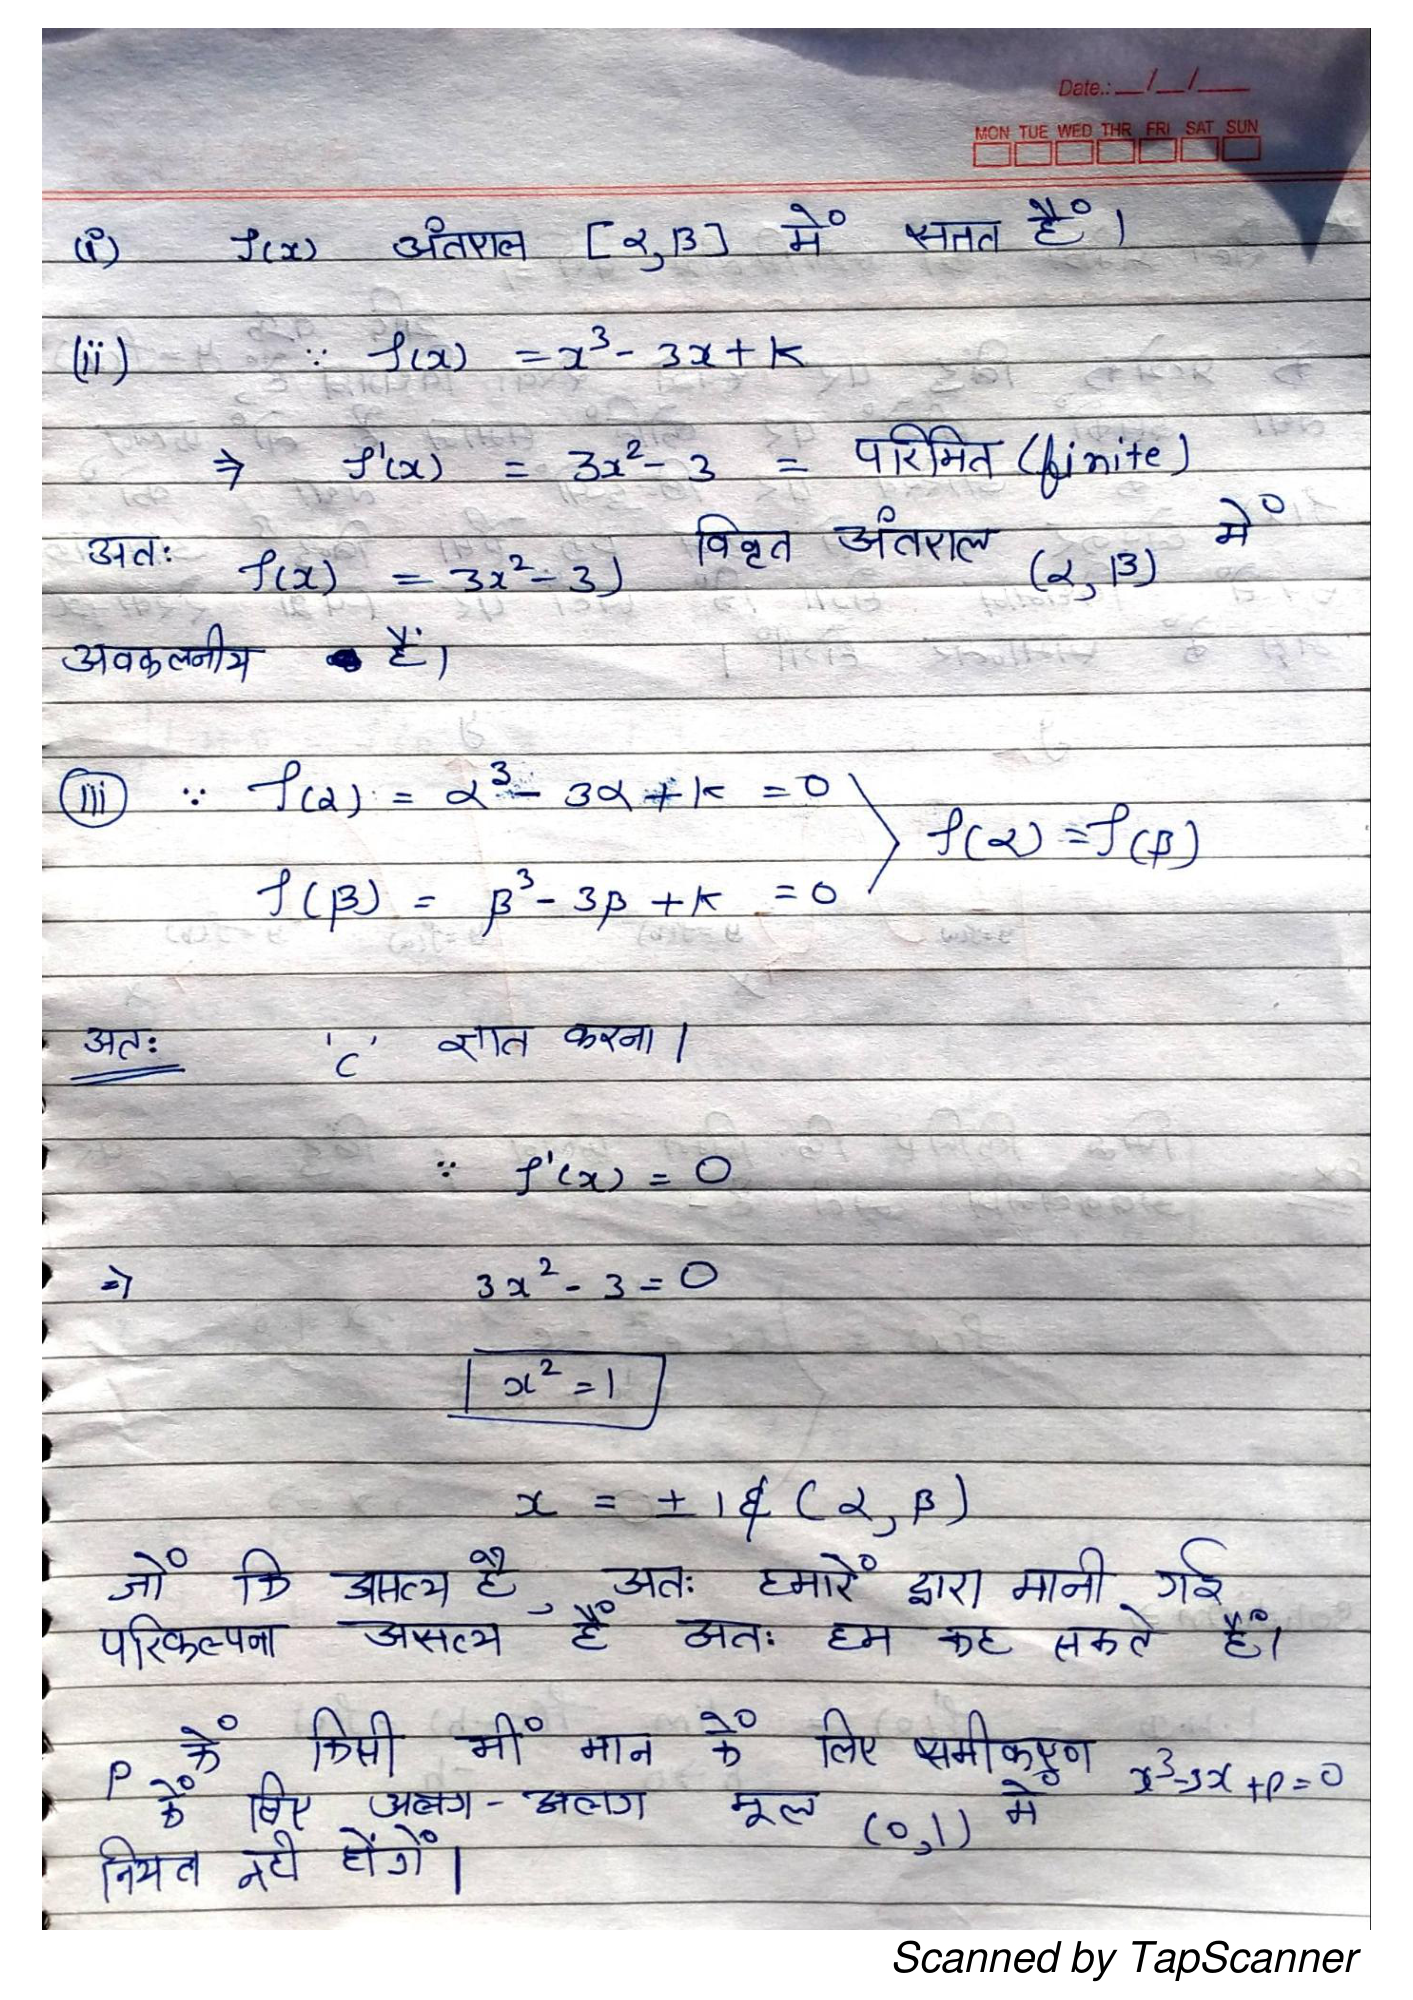 Date.: __/__/__
MON TUE WED THR FRI SAT SUN
(i) f(x) अंतराल [α,β] में सतत हैं।
(ii) ∵ f(x) = x³ - 3x + k
⇒ f'(x) = 3x² - 3 = परिमित (finite)
अतः f(x) = 3x² - 3) विवृत अंतराल (α, β) में
अवकलनीय हैं।
(iii) ∵ f(α) = α³ - 3α + k = 0
f(α) = f(β)
f(β) = β³ - 3β + k = 0
अतः 'c' ज्ञात करना।
∵ f'(x) = 0
⇒ 3x² - 3 = 0
x² = 1
x = ± 1 ∉ (α, β)
जों कि असत्य है, अतः हमारें द्वारा मानी गई
परिकल्पना असत्य हैं अतः हम कह सकते हैं।
P कें किसी भीं मान कें लिए समीकरण x³-3x+p=0
कें लिए अलग-अलग मूल (0,1) में
नियत नही होंगें।
Scanned by TapScanner